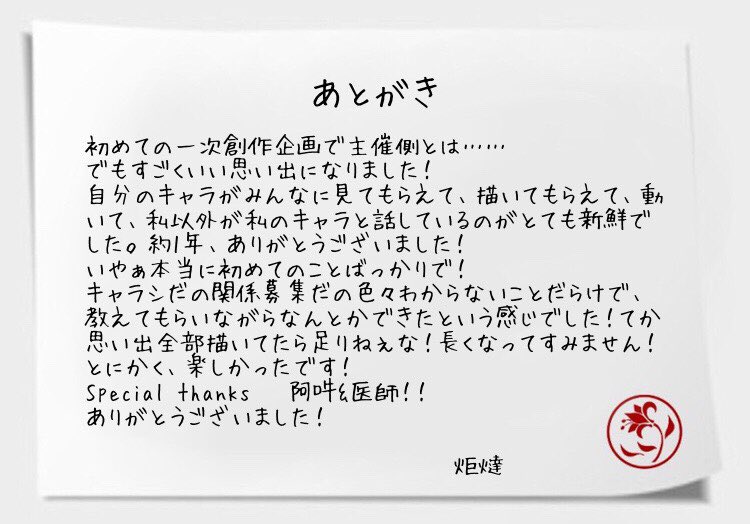 あとがき
初めての一次創作企画で主催側とは……
でもすごくいい思い出になりました!
自分のキャラがみんなに見てもらえて、描いてもらえて、動
いて、私以外が私のキャラと話しているのがとても新鮮で
した。約1年、ありがとうございました!
いやぁ本当に初めてのことばっかりで!
キャラシだの関係募集だの色々わからないことだらけで、
教えてもらいながらなんとかできたという感じでした!てか
思い出全部描いてたら足りねぇな!長くなってすみません!
とにかく、楽しかったです!
Special thanks 阿吽幺医師!!
ありがとうございました!
炬燵